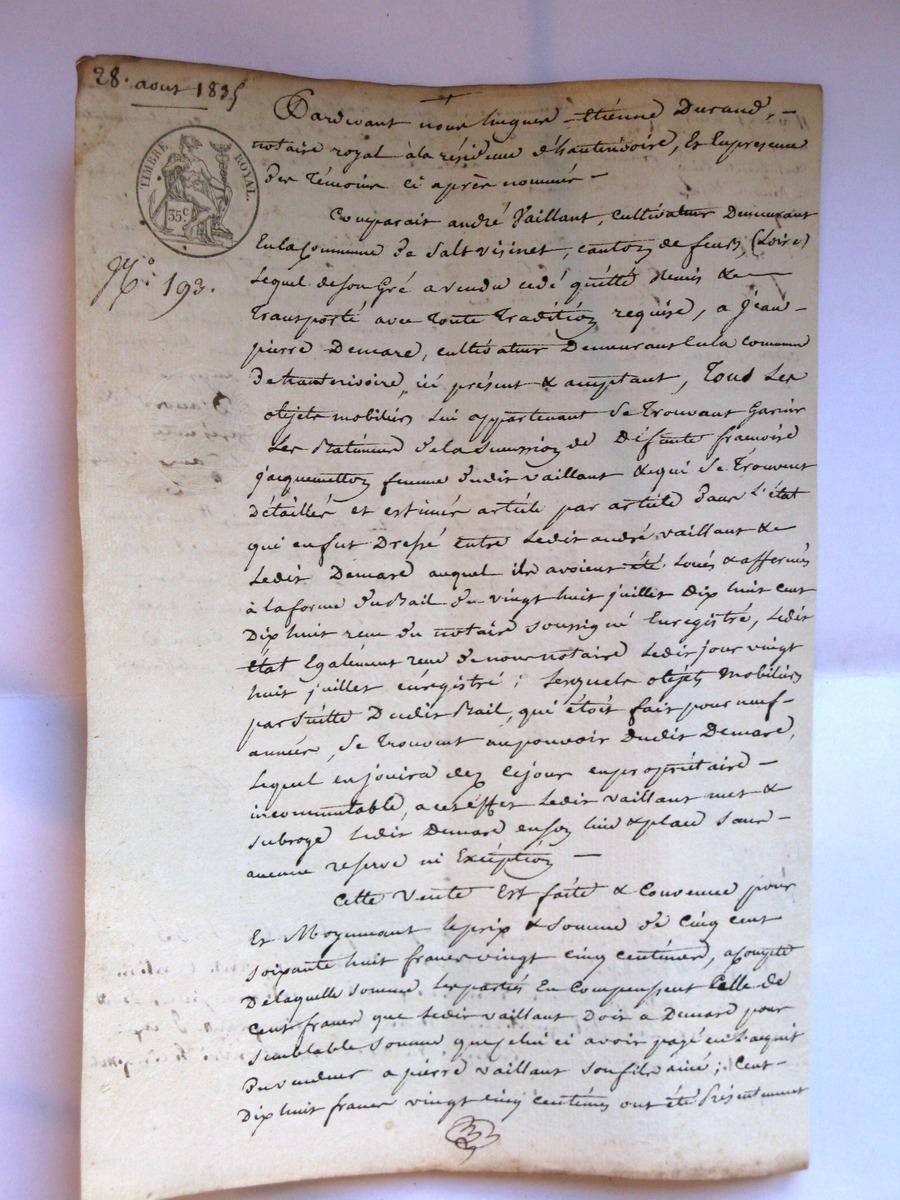 28. aout 1835
TIMBRE ROYAL.
35 c
N.° 193.
Pardevant nous Etiénne Durand,
notaire royal à la résidence d'hauterivoire, Et En presence
Des Témoins ci après nommés
Comparait andré Vaillant, cultivateur Demeurant
En la Commune De Salt visinet, canton de feurs, (Loire)
Lequel de son Gré a vendu cedé quitté Remis &
Transporté avec Toute Tradition requise, a Jean
pierre Demare, cultivateur Demeurant En la commune
De hauterivoire, ici présent & acceptant, Tous Les
objets mobiliers Lui appartenant Se Trouvant Garnir
Les Batimens De la Succession de Défunte francoise
jacquemetton femme Dudit vaillant & qui Se Trouvent
Détaillés et estimés article par article Dans L'état
qui en fut Dressé entre Ledit andré vaillant &
Ledit Demare auquel ils avoient été Loués & affermés
à la forme Du Bail Du vingt huit juillet Dix huit cent
Dix huit recu Du notaire soussigné Enregistré, Ledit
Etat Egalement recu De nous notaire Ledit jour vingt
huit juillet enregistré ; Lesquels objets Mobiliers
par Suitte Dudit Bail, qui étoit fait pour neuf
années, Se Trouvent au pouvoir Dudit Demare,
Lequel en jouira dez Ce jour en propriétaire
incommutable, a cet effet Ledit vaillant met &
subroge Ledit Demare en son lieu & place sans
aucune reserve ni Exception
Cette Vente Est faite & Convenue pour
Et Moyennant Le prix & Somme De Cinq cent
soixante huit francs vingt cinq centimes, a compte
De laquelle somme Les parties En Compensent Celle de
Cent francs que Ledit vaillant Doit a Demare pour
Semblable Somme que celui ci avoit payé en L'acquit
Du même a pierre vaillant son fils ainé ; Cent
Dix huit francs vingt cinq centimes ont été Présentement